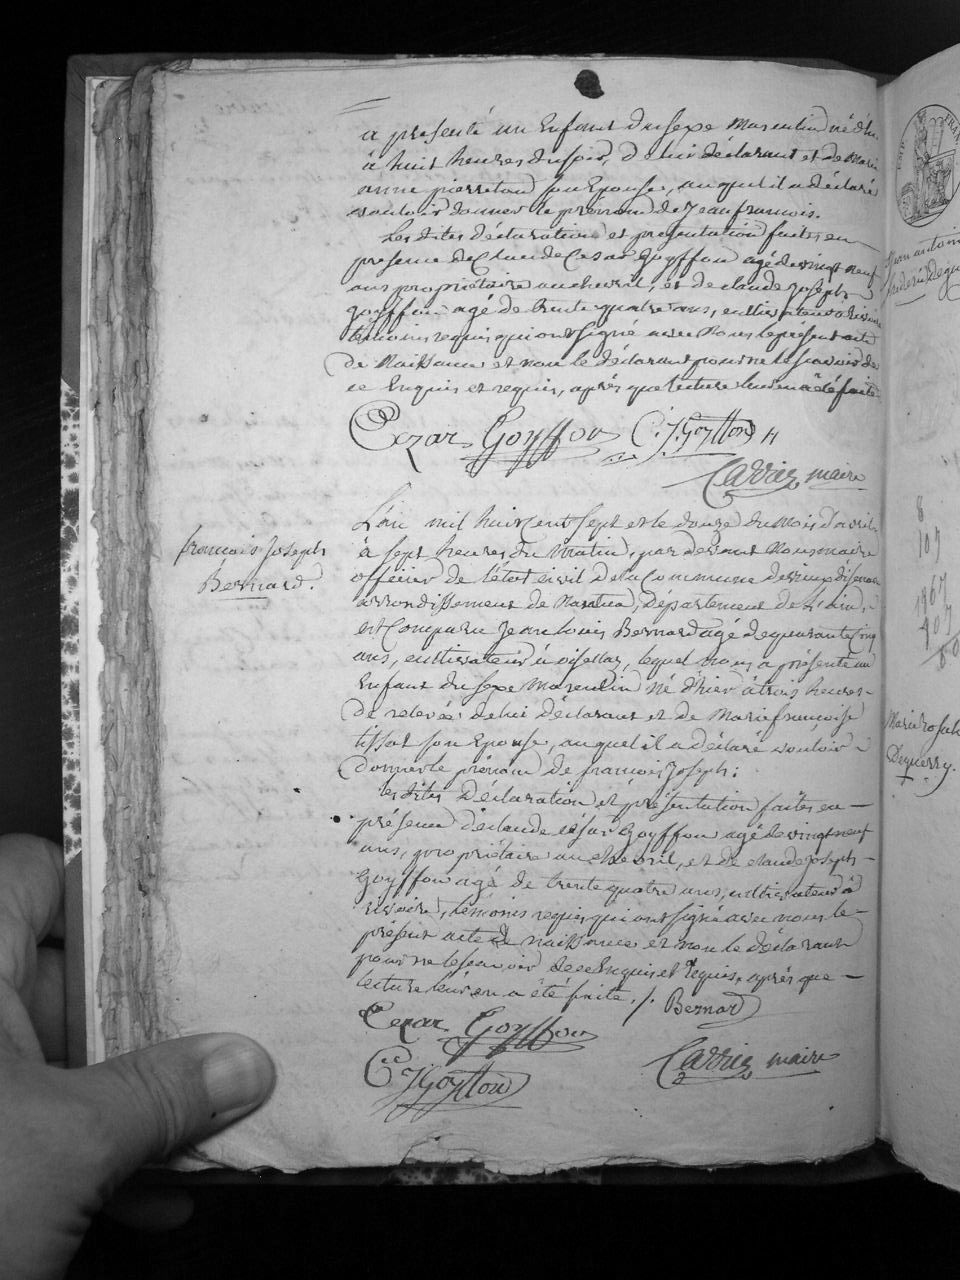 a presenté un Enfant du sexe Masculin né d'hier
à huit heures du soir, de lui déclarant et de Marie
anne pierreton son Epouse, auquel il a déclaré
vouloir donner le prénom de Jean francois.
Les dites déclaration et presentation faites en
presence de Claude Cesar Goyffon agé de vingt neuf
ans proprietaire au chevril, et de claude Joseph
goyffon agé de trente quatre ans, cultivateur à rivoire
témoins requis qui ont signé avec Nous le présent acte
de Naissance et non le déclarant pour ne le scavoir de
ce Enquis et requis, après que lecture leur en a été faite
Cezar Goyffon C. J. Goyffon
Carrier maire
L'an mil huit cent sept et le douze du Mois d'avril
à sept heures du Matin, par devant Nous maire
officier de l'état civil de la Commune de
arrondissement de Nantua, Département de l'ain,
est Comparu Jean Louis Bernard agé de quarante cinq
ans, cultivateur à oisellaz, lequel Nous a présenté un
Enfant du sexe Masculin né d'hier à trois heures
de relevée de lui déclarant et de Marie françoise
tissot son Epouse, auquel il a déclaré vouloir
donner le prénom de francois Joseph;
les dites Déclaration et présentation faites en
présence de claude césar Goyffon agé de vingt neuf
ans, propriétaire au chevril, et de claude Joseph
Goyffon agé de trente quatre ans, cultivateur à
rivoire, temoins requis qui ont signé avec nous le
présent acte de naissance et non le déclarant
pour ne le scavoir de ce Enquis et Requis, après que
lecture leur en a été faite. /. Bernard
Cezar Goyffon
C J Goyffon
Carrier maire
francois Joseph
Bernard.
EMP. FRAN
Jean antoine
8
107
1767
407
Marie rosalie